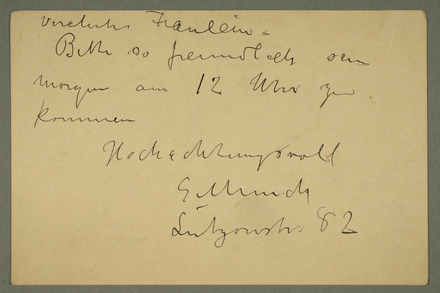 verehrtes Fräulein.
Bitte so freundlich sein
morgen am 12 Uhr zu
kommen
Hochachtungsvoll
E. Munch
Lützowstr. 82